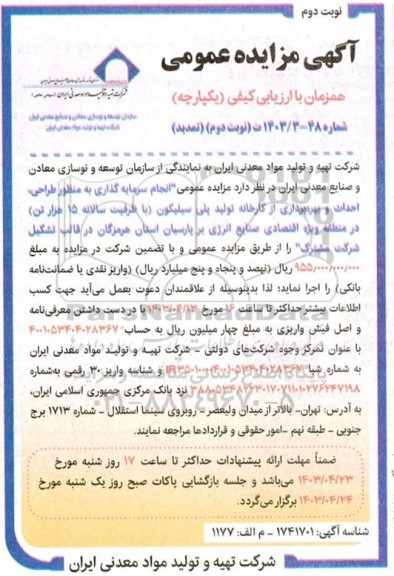 نوبت دوم
آگهی مزایده عمومی
همزمان با ارزیابی کیفی (یکپارچه)
شماره ۴۸-۱۴۰۳/۳ ت (نوبت دوم) (تمدید)
سازمان توسعه و نوسازی معادن و صنایع معدنی ایران
شرکت تهیه و تولید مواد معدنی ایران
شرکت تهیه و تولید مواد معدنی ایران به نمایندگی از سازمان توسعه و نوسازی معادن
و صنایع معدنی ایران در نظر دارد مزایده عمومی "انجام سرمایه گذاری به منظور طراحی،
احداث و بهره‌برداری از کارخانه تولید پلی سیلیکون (با ظرفیت سالانه ۱۵ هزار تن)
در منطقه ویژه اقتصادی صنایع انرژی بر پارسیان استان هرمزگان در قالب تشکیل
شرکت مشترک" را از طریق مزایده عمومی و با تضمین شرکت در مزایده به مبلغ
۹۵۵/۰۰۰/۰۰۰/۰۰۰ ریال (نهصد و پنجاه و پنج میلیارد ریال) (واریز نقدی یا ضمانت‌نامه
بانکی) را اجرا نماید؛ لذا بدینوسیله از علاقمندان دعوت بعمل می‌آید جهت کسب
اطلاعات بیشتر حداکثر تا ساعت ۱۶ مورخ ۱۴۰۳/۰۴/۱۳ با در دست داشتن معرفی‌نامه
و اصل فیش واریزی به مبلغ چهار میلیون ریال به حساب ۴۰۰۱۰۵۳۴۰۴۰۲۸۳۶۷
با عنوان تمرکز وجوه شرکت‌های دولتی - شرکت تهیه و تولید مواد معدنی ایران
به شماره شبا و شناسه واریز ۳۰ رقمی به‌شماره
نزد بانک مرکزی جمهوری اسلامی ایران،
به آدرس: تهران- بالاتر از میدان ولیعصر - روبروی سینما استقلال - شماره ۱۷۱۳ برج
جنوبی - طبقه نهم - امور حقوقی و قراردادها مراجعه نمایند.
ضمناً مهلت ارائه پیشنهادات حداکثر تا ساعت ۱۷ روز شنبه مورخ
۱۴۰۳/۰۴/۲۳ می‌باشد و جلسه بازگشایی پاکات صبح روز یک شنبه مورخ
۱۴۰۳/۰۴/۲۴ برگزار می‌گردد.
شناسه آگهی: ۱۷۴۱۷۰۱ - م الف: ۱۱۷۷
شرکت تهیه و تولید مواد معدنی ایران